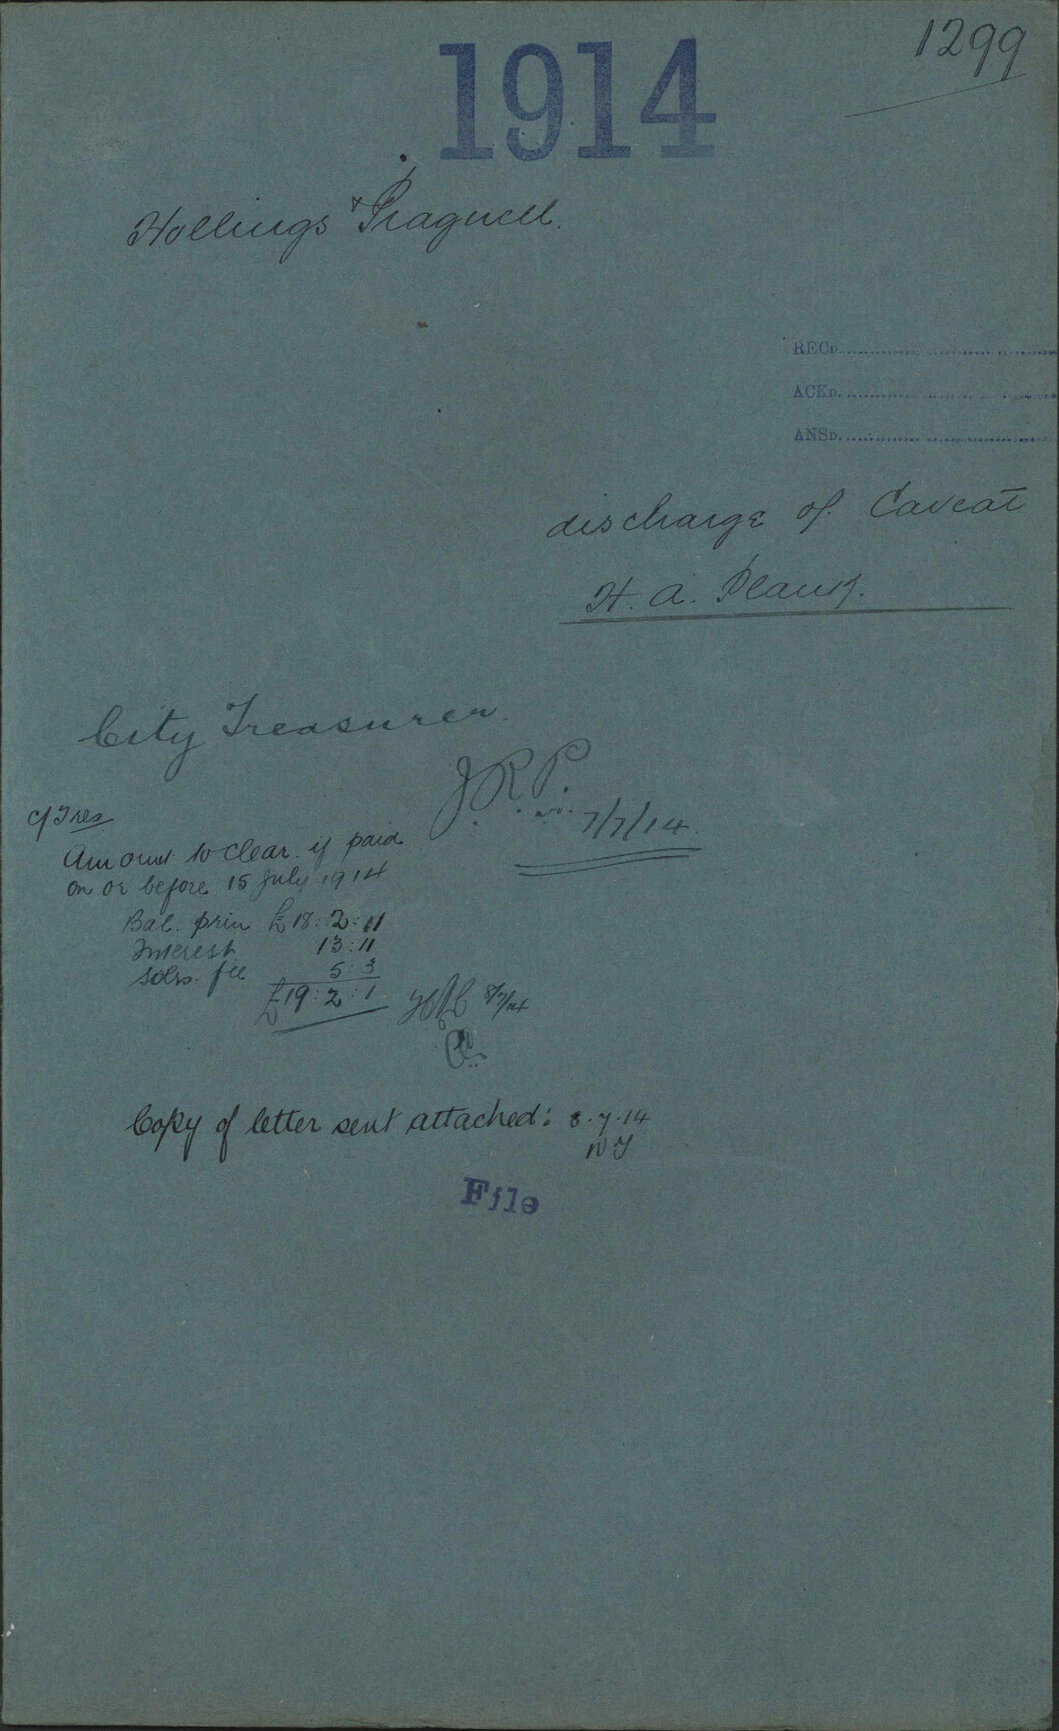 1914
1299
Hollings & Pragnell.
RECD.
ACKD.
ANSD.
discharge of Caveat
H. A. Plank.
City Treasurer.
J.R.P.
7/7/14.
C/Tres
Amount to clear if paid
on or before 15 July 1914
Bal. prin £18:2:11
Interest 13:11
Solrs. fee 5:3
£19:2:1
8/7/14
Copy of letter sent attached: 8.7.14
File